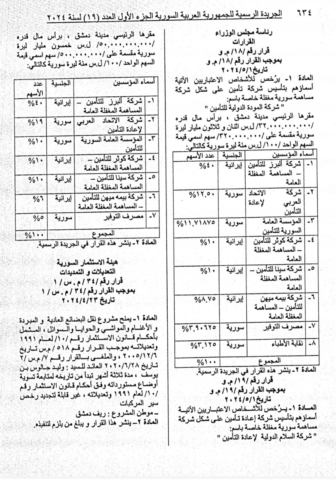 ٦٣٤ الجريدة الرسمية للجمهورية العربية السورية الجزء الأول العدد (١٩) لسنة ٢٠٢٤
رئاسة مجلس الوزراء
القرارات
قرار رقم /١٨/ م.و
تاريخ ٢٠٢٤/٥/١
المادة ١- يُرخص للأشخاص الاعتباريين الآتية
أسماؤهم بتأسيس شركة تأمين على شكل شركة
مساهمة مغفلة خاصة باسم:
" شركة المودة الدولية للتأمين "
مقرها الرئيسي مدينة دمشق ، برأس مال قدره
/٣٢,٠٠٠,٠٠٠,٠٠٠/ ل.س اثنان وثلاثون مليار ليرة
سورية مقسمة على /٣٢٠,٠٠٠,٠٠٠/ سهم اسمي قيمة
السهم الواحد /١٠٠/ ل.س مئة ليرة سورية كالتالي:
أسماء المؤسسين الجنسية عدد الأسهم
١- شركة ألبرز للتأمين – المساهمة المغفلة العامة إيرانية ٤٠%
٢- شركة الاتحاد العربي لإعادة التأمين سورية ١٢,٥٠%
٣- المؤسسة العامة السورية للتأمين سورية ١١,٧١٨٧٥%
٤- شركة كوثر للتأمين – المساهمة المغفلة العامة إيرانية ١٠%
٥- شركة سينا للتأمين – المساهمة المغفلة العامة إيرانية ١٠%
٦- شركة بيمه ميهن للتأمين – المساهمة المغفلة العامة إيرانية ٨,٧٥%
٧- مصرف التوفير سورية ٣,٩٠٦٢٥%
٨- نقابة الأطباء سورية ٣,١٢٥%
المجموع ١٠٠%
المادة ٢- ينشر هذا القرار في الجريدة الرسمية.
قرار رقم /١٩/ م.و
بموجب القرار رقم /١٩/ م.و
تاريخ ٢٠٢٤/٥/١
المادة ١- يُرخص للأشخاص الاعتباريين الآتية
أسماؤهم بتأسيس شركة إعادة تأمين على شكل
شركة مساهمة مغفلة خاصة باسم:
" شركة السلام الدولية لإعادة التأمين "
مقرها الرئيسي مدينة دمشق ، برأس مال قدره
/٥٠,٠٠٠,٠٠٠,٠٠٠/ ل.س خمسون مليار ليرة
سورية مقسمة على /٥٠٠,٠٠٠,٠٠٠/ سهم اسمي قيمة
السهم الواحد /١٠٠/ ل.س مئة ليرة سورية كالتالي:
أسماء المؤسسين الجنسية عدد الأسهم
١- شركة ألبرز للتأمين – المساهمة المغفلة العامة إيرانية ٤٠%
٢- شركة الاتحاد العربي لإعادة التأمين سورية ١٩%
٣- المؤسسة العامة السورية للتأمين سورية ١٠%
٤- شركة كوثر للتأمين – المساهمة المغفلة العامة إيرانية ١٠%
٥- شركة سينا للتأمين – المساهمة المغفلة العامة إيرانية ١٠%
٦- شركة بيمه ميهن للتأمين – المساهمة المغفلة العامة إيرانية ٦%
٧- مصرف التوفير سورية ٥%
المجموع ١٠٠%
المادة ٢- ينشر هذا القرار في الجريدة الرسمية.
هيئة الاستثمار السورية
التعديلات و التمديدات
قرار رقم /٣٤/ م.س / ١
بموجب القرار رقم /٣٤/ م.س / ١
تاريخ ٢٠٢٤/٤/٢٣
المادة ١- يمنح مشروع نقل البضائع العادية و المبردة
و الأغنام والمواشي والحوايا والسوائل، المشمل
بأحكام قانون الاستثمار رقم /١٠/ لعام ١٩٩١
وتعديلاته بموجب القرار رقم /٥١٨/ م.س تاريخ
٢٠٠٥/١٢/٦، والملغى بالقرار رقم /٧/ م.س/٢
تاريخ ٢٠٢٠/٦/٢٨ العائد للسيد : وليد جالوس بن
يوسف ، مدة ثلاثة أشهر تبدأ من تاريخه لمتابعة تسوية
أوضاع مستورداته وفق أحكام قانون الاستثمار رقم
/١٠/ لعام ١٩٩١ وتعديلاته ، غير قابلة لتجديد رخص
سير المركبات
– موطن المشروع : ريف دمشق
المادة ٢- ينشر هذا القرار و يبلغ من يلزم لتنفيذه.